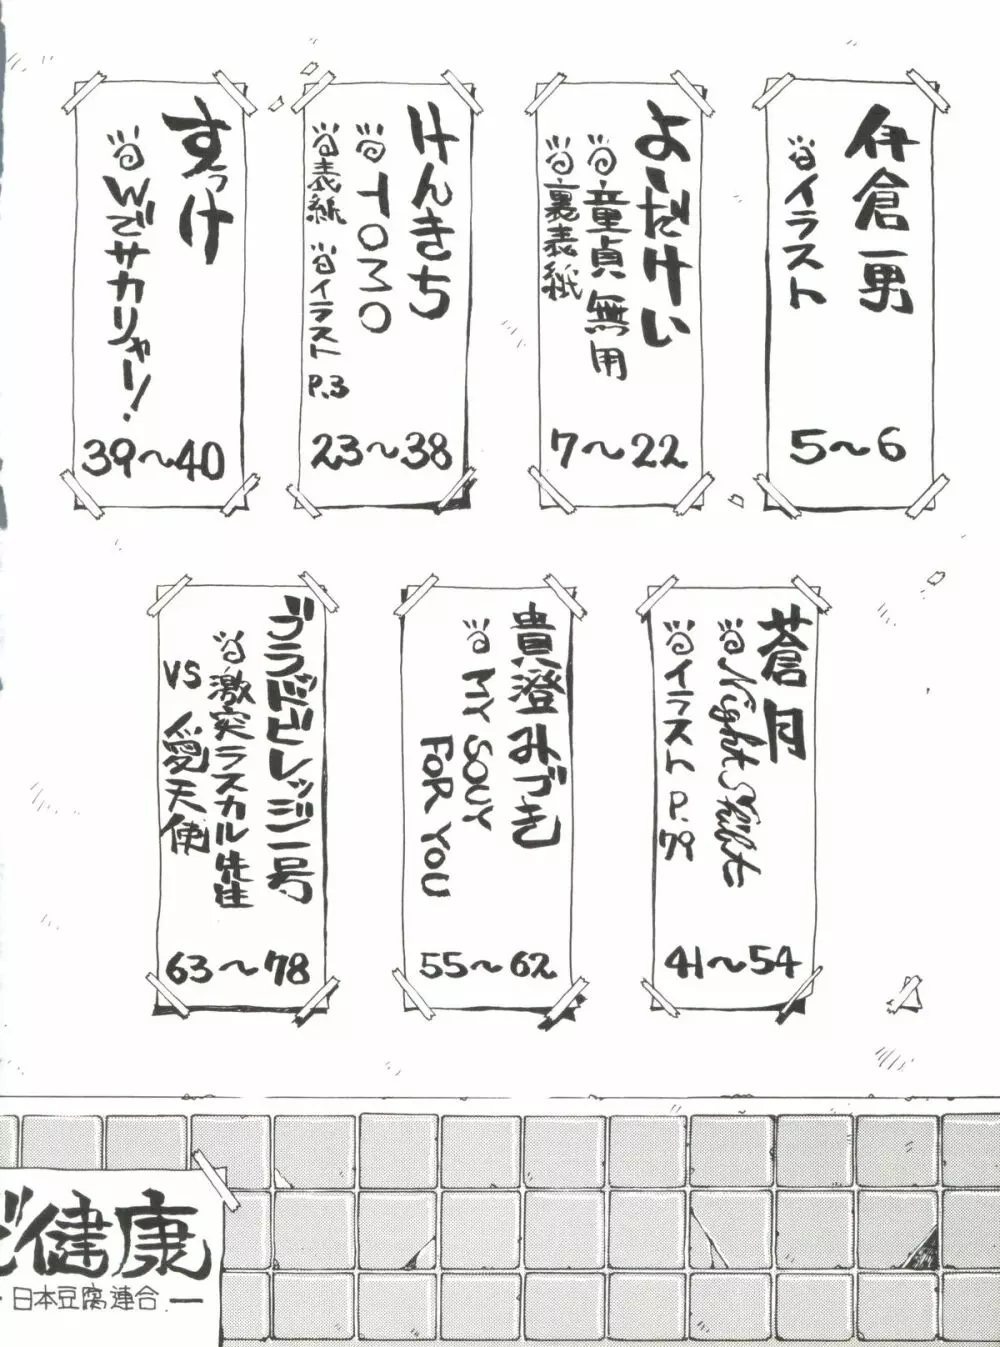 伊倉一男
イラスト
5〜6
よしだけい
童貞無用
裏表紙
7〜22
けんきち
TOMO
表紙 イラスト P.3
23〜38
すっけ
Wでサカリャー!
39〜40
蒼月
Night Shift
イラスト P.79
41〜54
貴澄みづき
MY SOUY
FoR YOU
55〜62
ブラドビレッジ一号
激突ラスカル先生
VS 愛天使
63〜78
健康
日本豆腐連合